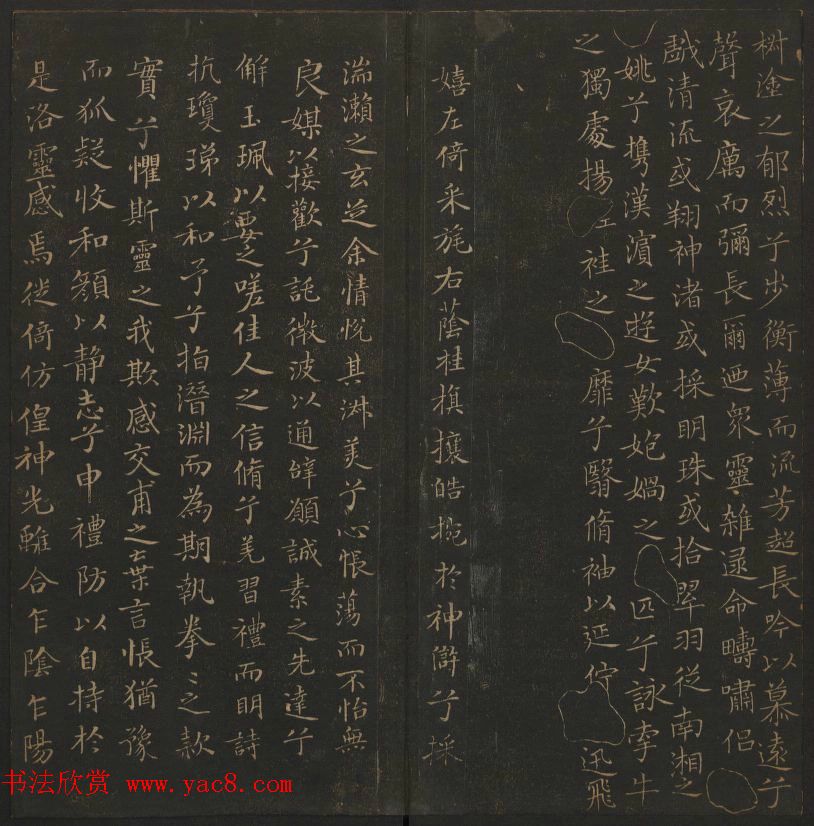 椒塗之郁烈兮步衡薄而流芳超長吟以慕遠兮
聲哀厲而彌長爾迺眾靈雜遝命疇嘯侶
戲清流或翔神渚或採明珠或拾翠羽從南湘之
姚兮攜漢濱之遊女歎匏媧之匹兮詠牽牛
之獨處揚袿之靡兮翳脩袖以延佇迅飛
嬉左倚采旄右蔭桂旗攘皓捥於神滸兮採
湍瀨之玄芝余情悅其淑美兮心悵蕩而不怡無
良媒以接歡兮託微波以通辭願誠素之先達兮
解玉珮以要之嗟佳人之信脩兮羌習禮而明詩
抗瓊珶以和予兮指潛淵而為期執拳〻之款
實兮懼斯靈之我欺感交甫之棄言悵猶豫
而狐疑收和顏以静志兮申禮防以自持於
是洛靈感焉徙倚仿偟神光離合乍陰乍陽
书法欣赏 www.yac8.com